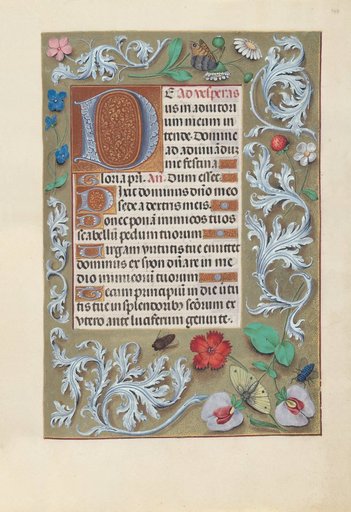 DE Ad vesperas
us in adiutor
ium meum in
tende. Domine
ad adiuuandū
me festina.
Gloria pri. An. Dum esset.
Dixit dominus dño meo
sede a dextris meis.
Donec ponā inimicos tuos
scabellū pedum tuorum
Uirgam uirtutis tue emittet
dominus ex syon dñare in me
dio inimicorū tuorum
Tecum principiū in die uirtu
tis tue in splendoribꝰ sctorum ex
vtero ante luciferum genui te.